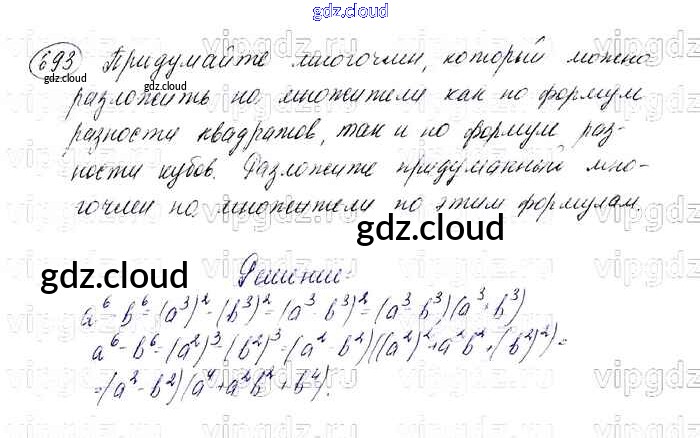 gdz.cloud
gdz.cloud
693 Придумайте многочлен, который можно
gdz.cloud
gdz.cloud
разложить на множители как по формуле
разности квадратов, так и по формуле раз-
ности кубов. Разложите придуманный мно-
гочлен на множители по этим формулам.
gdz.cloud
gdz.cloud
Решение:
a⁶-b⁶=(a³)²-(b³)²=(a³-b³)²=(a³-b³)(a³+b³)
a⁶-b⁶=(a²)³-(b²)³=(a²-b²)((a²)²+a²b²+(b²)²)=
=(a²-b²)(a⁴+a²b²+b⁴).
vipgdz